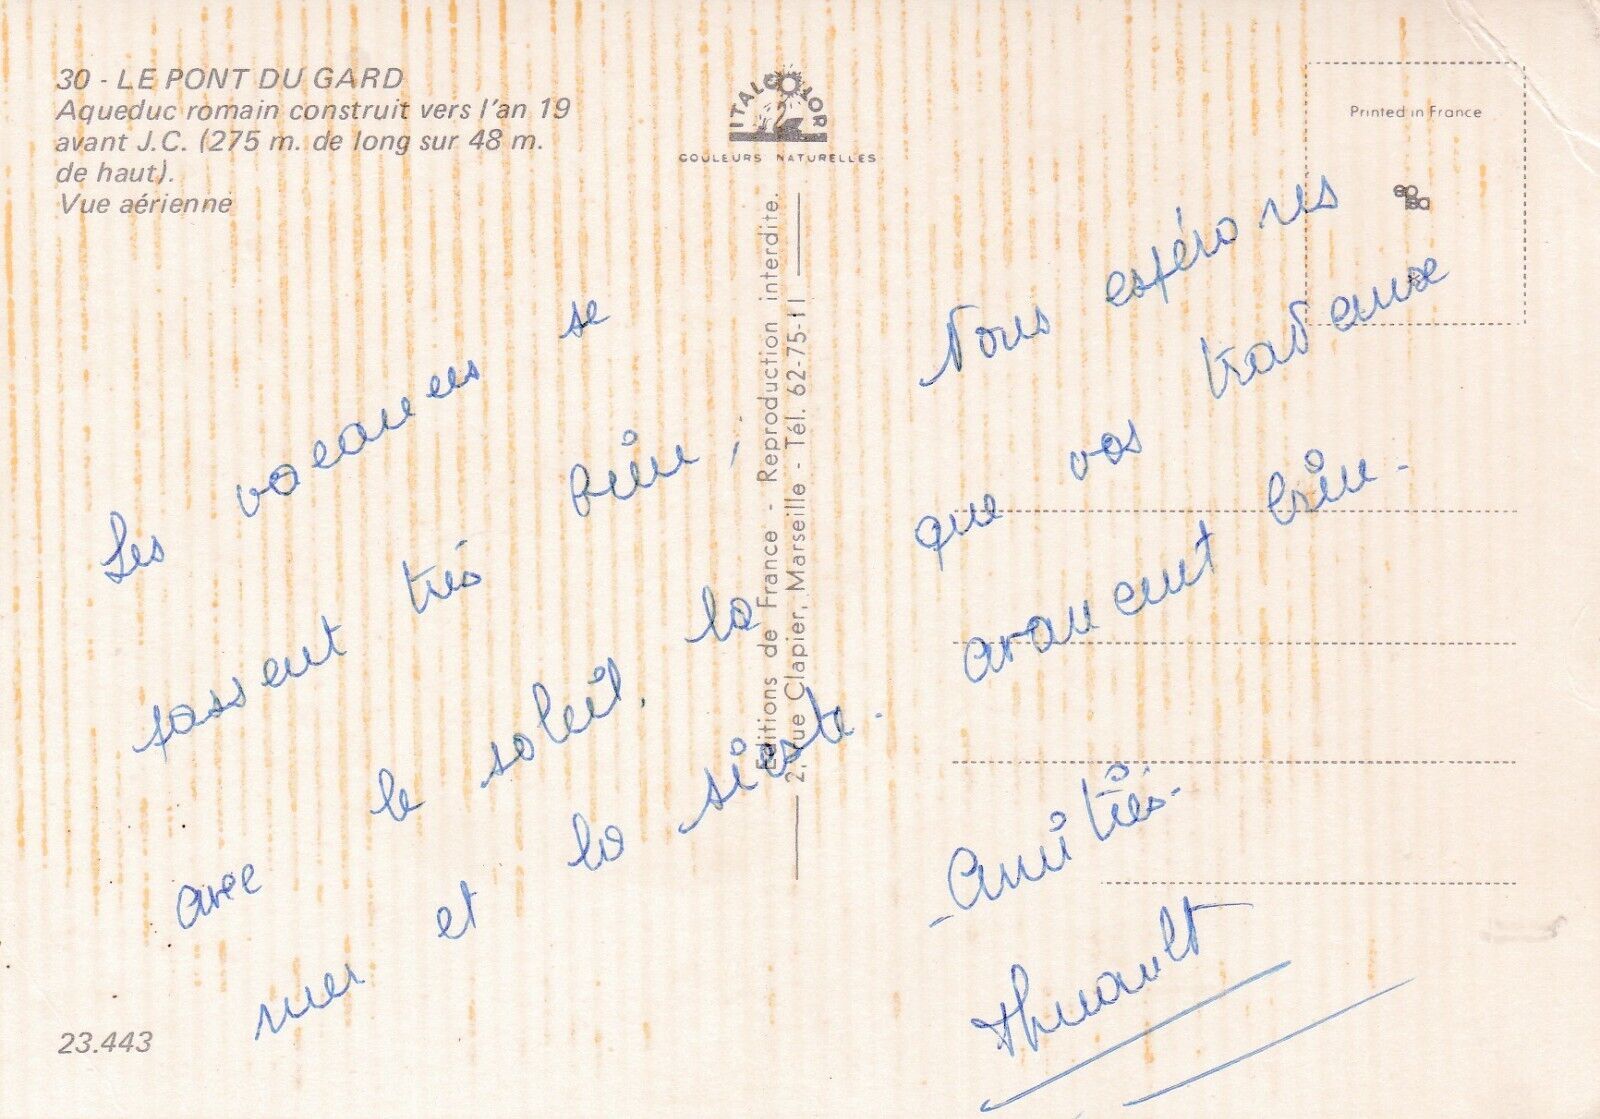 30 - LE PONT DU GARD
Aqueduc romain construit vers l'an 19
avant J.C. (275 m. de long sur 48 m.
de haut).
Vue aérienne
ITALCOLOR
COULEURS NATURELLES
Printed in France
Editions de France - Reproduction interdite.
2, rue Clapier, Marseille - Tél. 62-75-11
Les vacances se
passent très bien,
avec le soleil, la
mer et la sieste.
Nous espérons
que vos travaux
avancent bien.
Amitiés.
Thuault
23.443